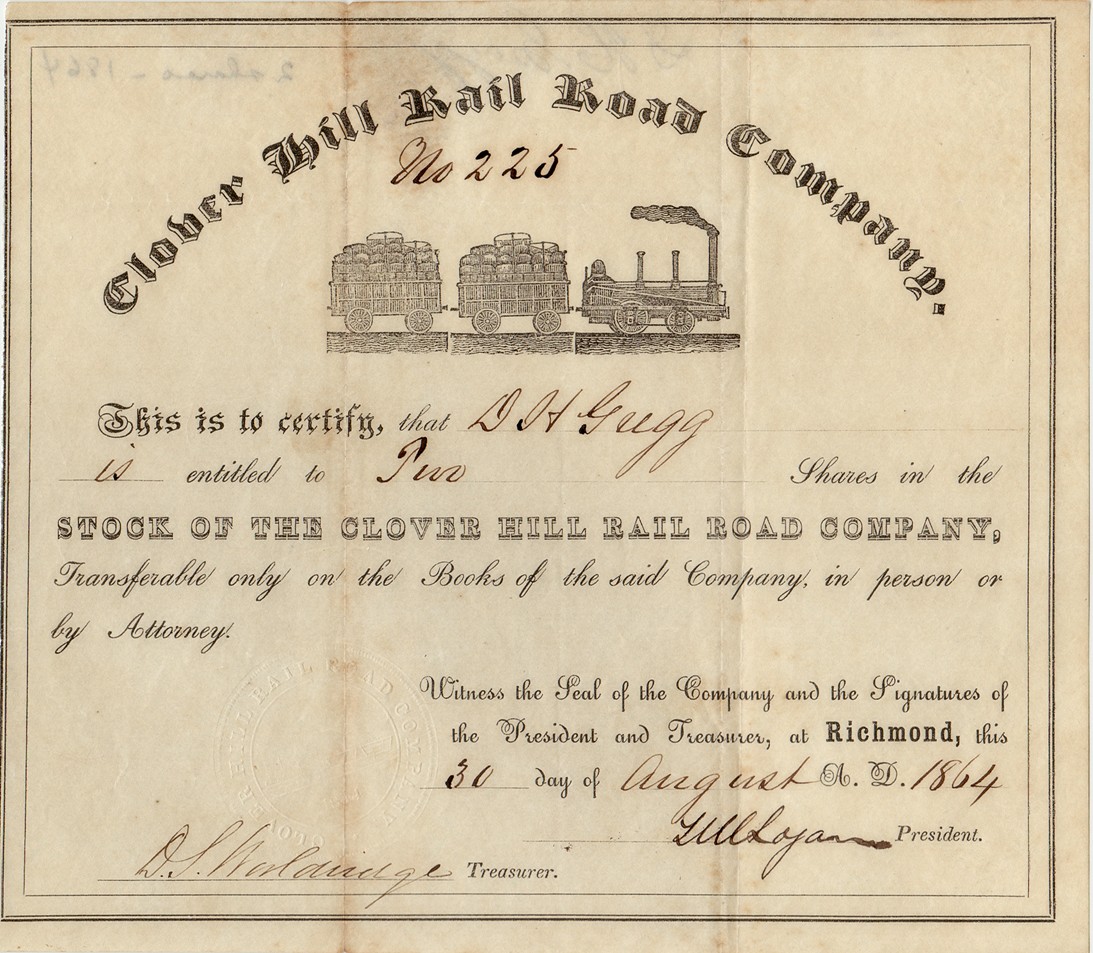 2 shares - 1864
Clover Hill Rail Road Company.
No 225
This is to certify, that D H Gregg
is entitled to Two Shares in the
STOCK OF THE CLOVER HILL RAIL ROAD COMPANY,
Transferable only on the Books of the said Company, in person or
by Attorney.
CLOVER HILL RAIL ROAD COMPANY
Witness the Seal of the Company and the Signatures of
the President and Treasurer, at Richmond, this
30 day of August A. D. 1864
Logan President.
D. S. Wooldridge Treasurer.